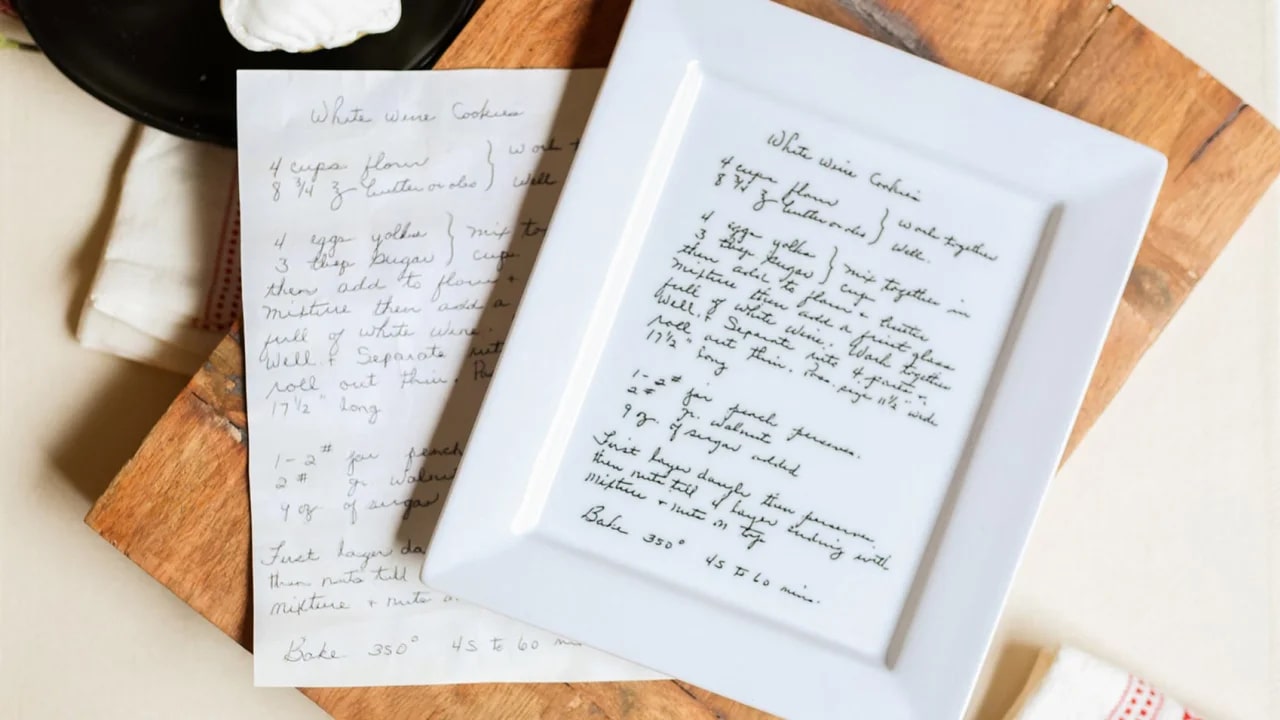 White Wine Cookies
4 cups flour } work
8 3/4 z butter or oleo } well
4 eggs yolks } mix
3 tbsp sugar } cup
then add to flour +
mixture then add a
full of white wine.
Well. + Separate
roll out thin.
17 1/2" long
1-2# jar peach
2# gr. walnut
9 oz. of sugar
First layer
then nuts till
mixture + nuts
Bake 350° 45 to 60
White Wine Cookies
4 cups flour } work together
8 3/4 z butter or oleo } well.
4 eggs yolks } mix together in
3 tbsp sugar } cup
then add to flour + butter
mixture then add a fruit glass
full of white wine. Work together
Well. + Separate into 4 parts +
roll out thin. 11 1/2" wide
17 1/2" long
1-2# jar peach perserves.
2# gr. walnut
9 oz. of sugar added
First layer dough then perserves
then nuts till 4 layer ending with
mixture + nuts on top
Bake 350° 45 to 60 mins.